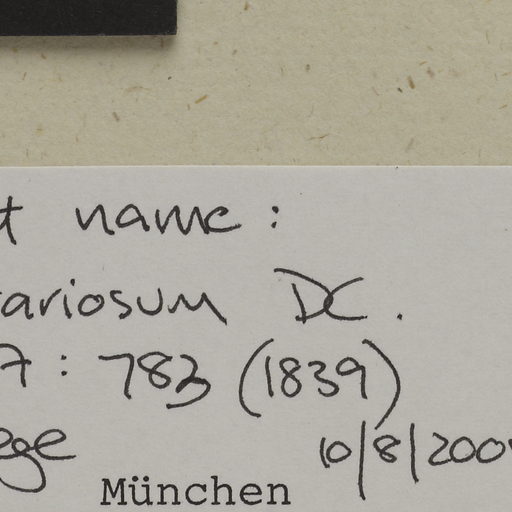 t name :
ariosum DC.
7 : 783 (1839)
ege 10/8/200
München